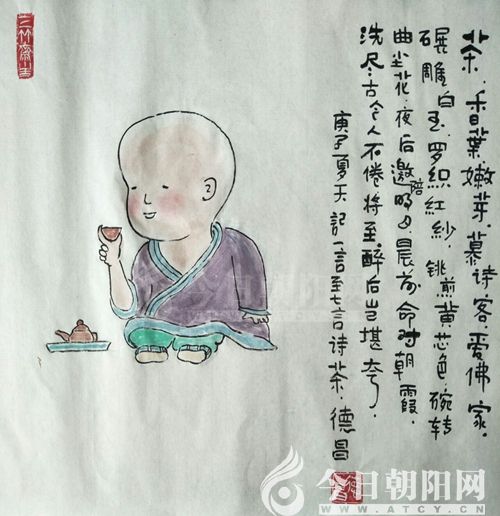 三竹斋主
茶.香葉.嫩芽.慕诗客.爱佛家.
碾雕白玉.罗织紅紗.铫煎黄芯色.碗转
曲尘花.夜后邀陪明月.晨前命对朝霞.
洗尽古今人不倦将至醉后岂堪夸.
庚子夏天记一言至七言诗茶.德昌
今日朝阳网
今日朝阳网
WWW.ATCY.CN